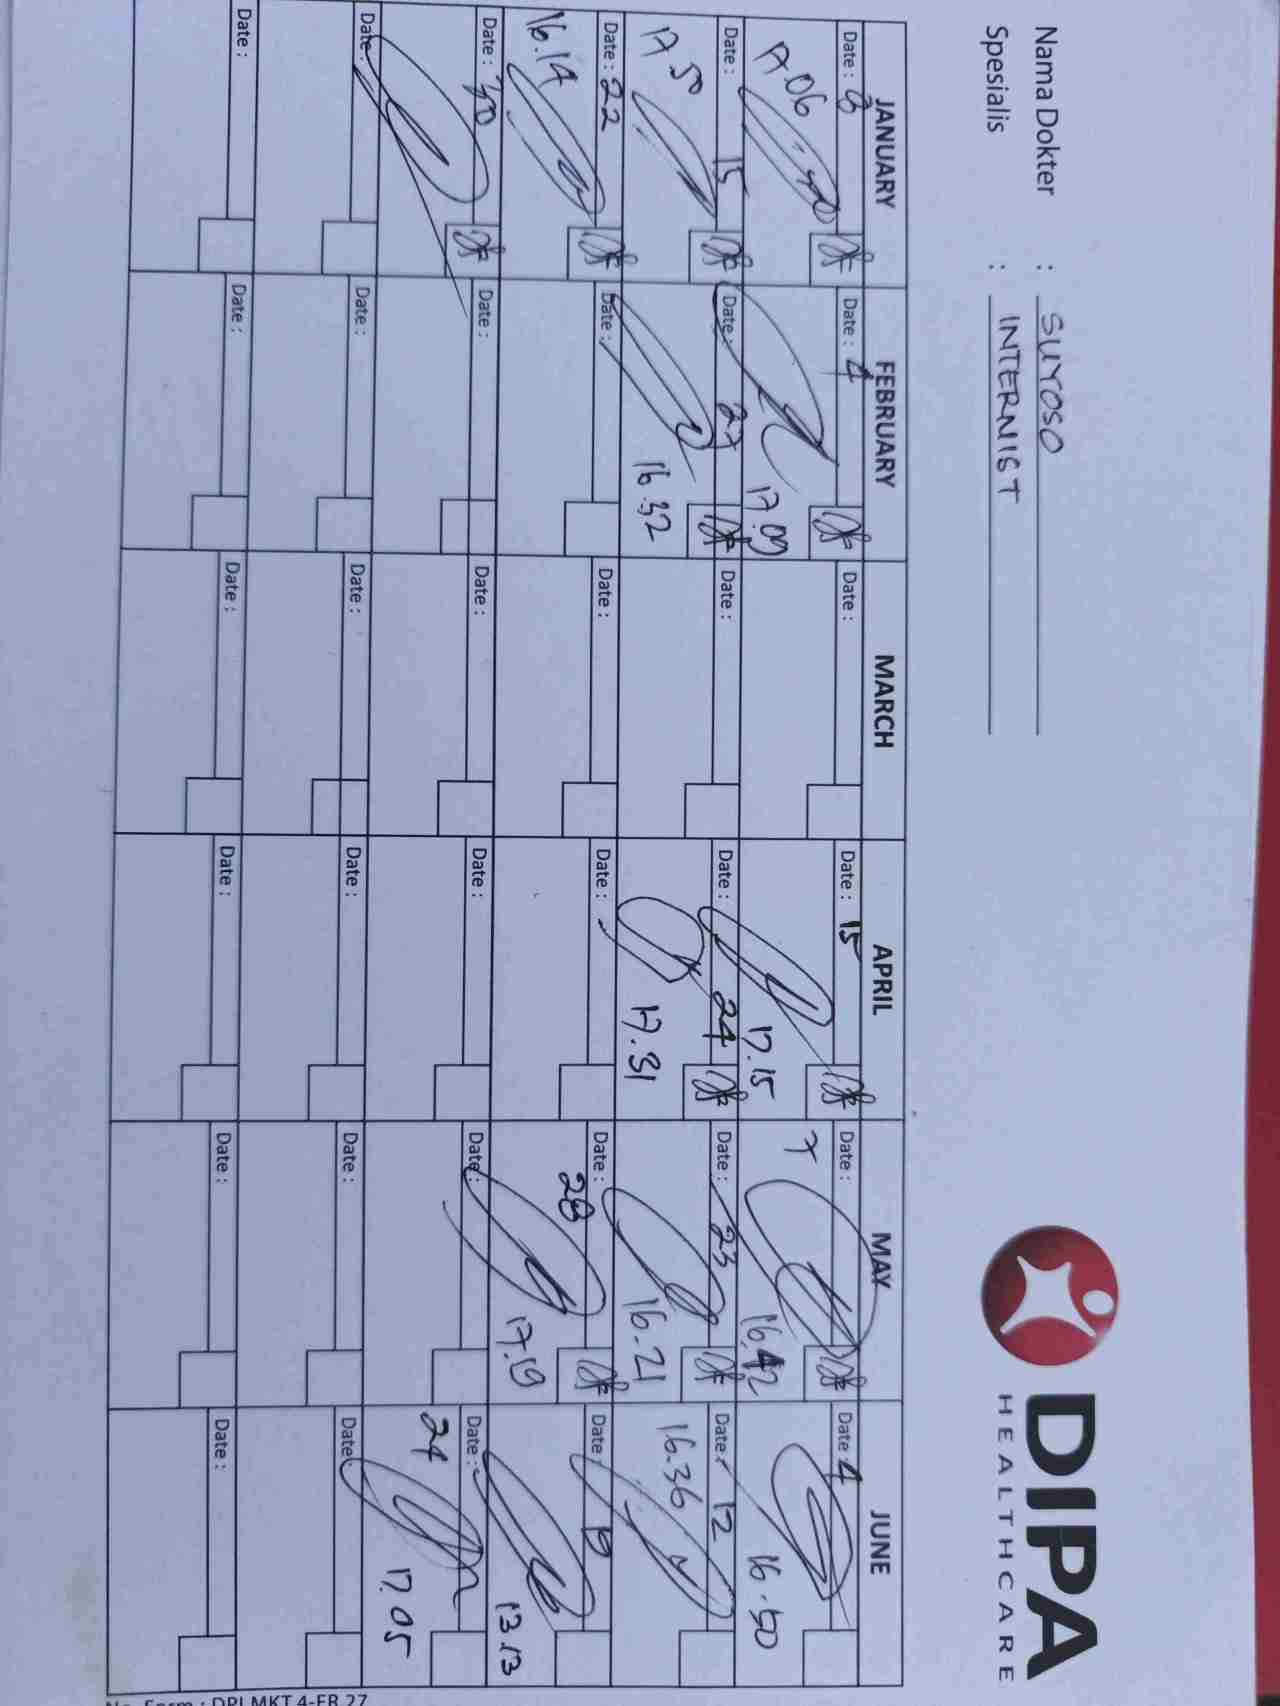 DIPA
HEALTHCARE
Nama Dokter : SUYOSO
Spesialis : INTERNIST
JANUARY FEBRUARY MARCH APRIL MAY JUNE
Date : 8 Date : 4 Date : Date : 15 Date : 7 Date : 4
17.06 17.09 17.15 16.42 16.50
Date : 15 Date : 27 Date : Date : 24 Date : 23 Date : 12
17.50 16.32 17.31 16.21 16.36
Date : 22 Date : Date : Date : Date : 28 Date :
16.14 17.19 13.13
Date : 30 Date : Date : Date : Date : Date : 24
17.05
Date : Date : Date : Date : Date : Date :
Date : Date : Date : Date : Date : Date :
No. Form : DPI.MKT.4-FR.27